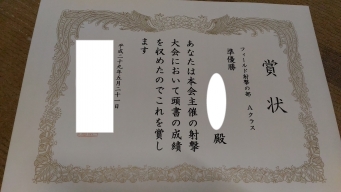 賞状
フィールド射撃の部 Aクラス
準優勝
殿
あなたは本会主催の射撃
大会において頭書の成績
を収めたのでこれを賞し
ます
平成二十九年五月二十一日